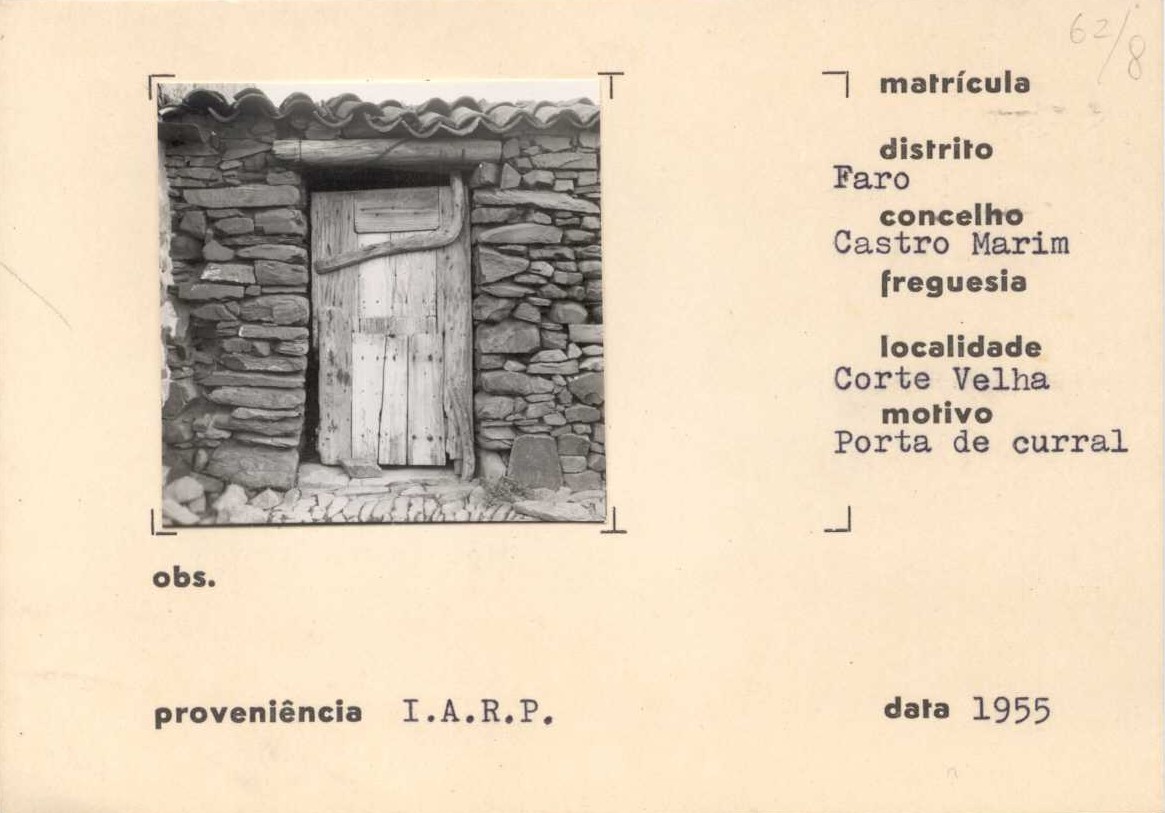 62/8
matrícula
distrito
Faro
concelho
Castro Marim
freguesia
localidade
Corte Velha
motivo
Porta de curral
obs.
proveniência I.A.R.P.
data 1955